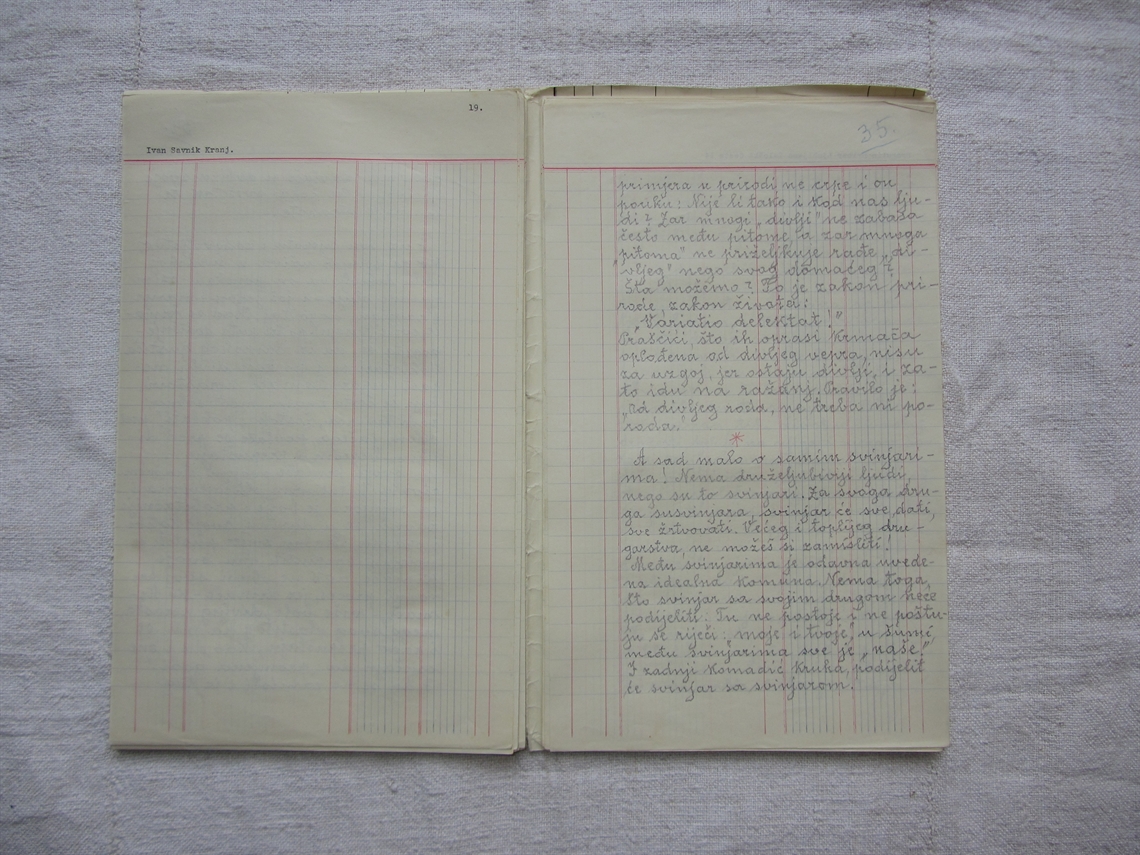 19.
Ivan Savnik Kranj.
35.
primjera u prirodi ne crpe i on
pouku: Nije li tako i kod nas lju-
di? Zar mnogi „divlji" ne zabasa
često među pitome, a zar mnoga
„pitoma" ne priželjkuje rađe „di-
vljeg" nego svog domaćeg?
Šta možemo? To je zakon pri-
rode, zakon života:
„Variatio delektat!"
Praščići, što ih oprasi krmača
oplođena od divljeg vepra, nisu
za uzgoj, jer ostaju divlji, i za-
to idu na ražanj. Pravilo je:
„Od divljeg roda, ne treba ni po-
roda."
*
A sad malo o samim svinjari-
ma! Nema druželjubiviji ljudi,
nego su to svinjari. Za svoga dru-
ga susvinjara, svinjar će sve dati,
sve žrtvovati. Većeg i toplijeg dru-
garstva, ne možeš si zamisliti!
Među svinjarima je odavna uvede-
na idealna komuna. Nema toga,
što svinjar sa svojim drugom neće
podijeliti. Tu ne postoje i ne poštu-
ju se riječi: „moje i tvoje", u šumi,
među svinjarima sve je „naše".
I zadnji komadić kruha, podijelit
će svinjar sa svinjarom.